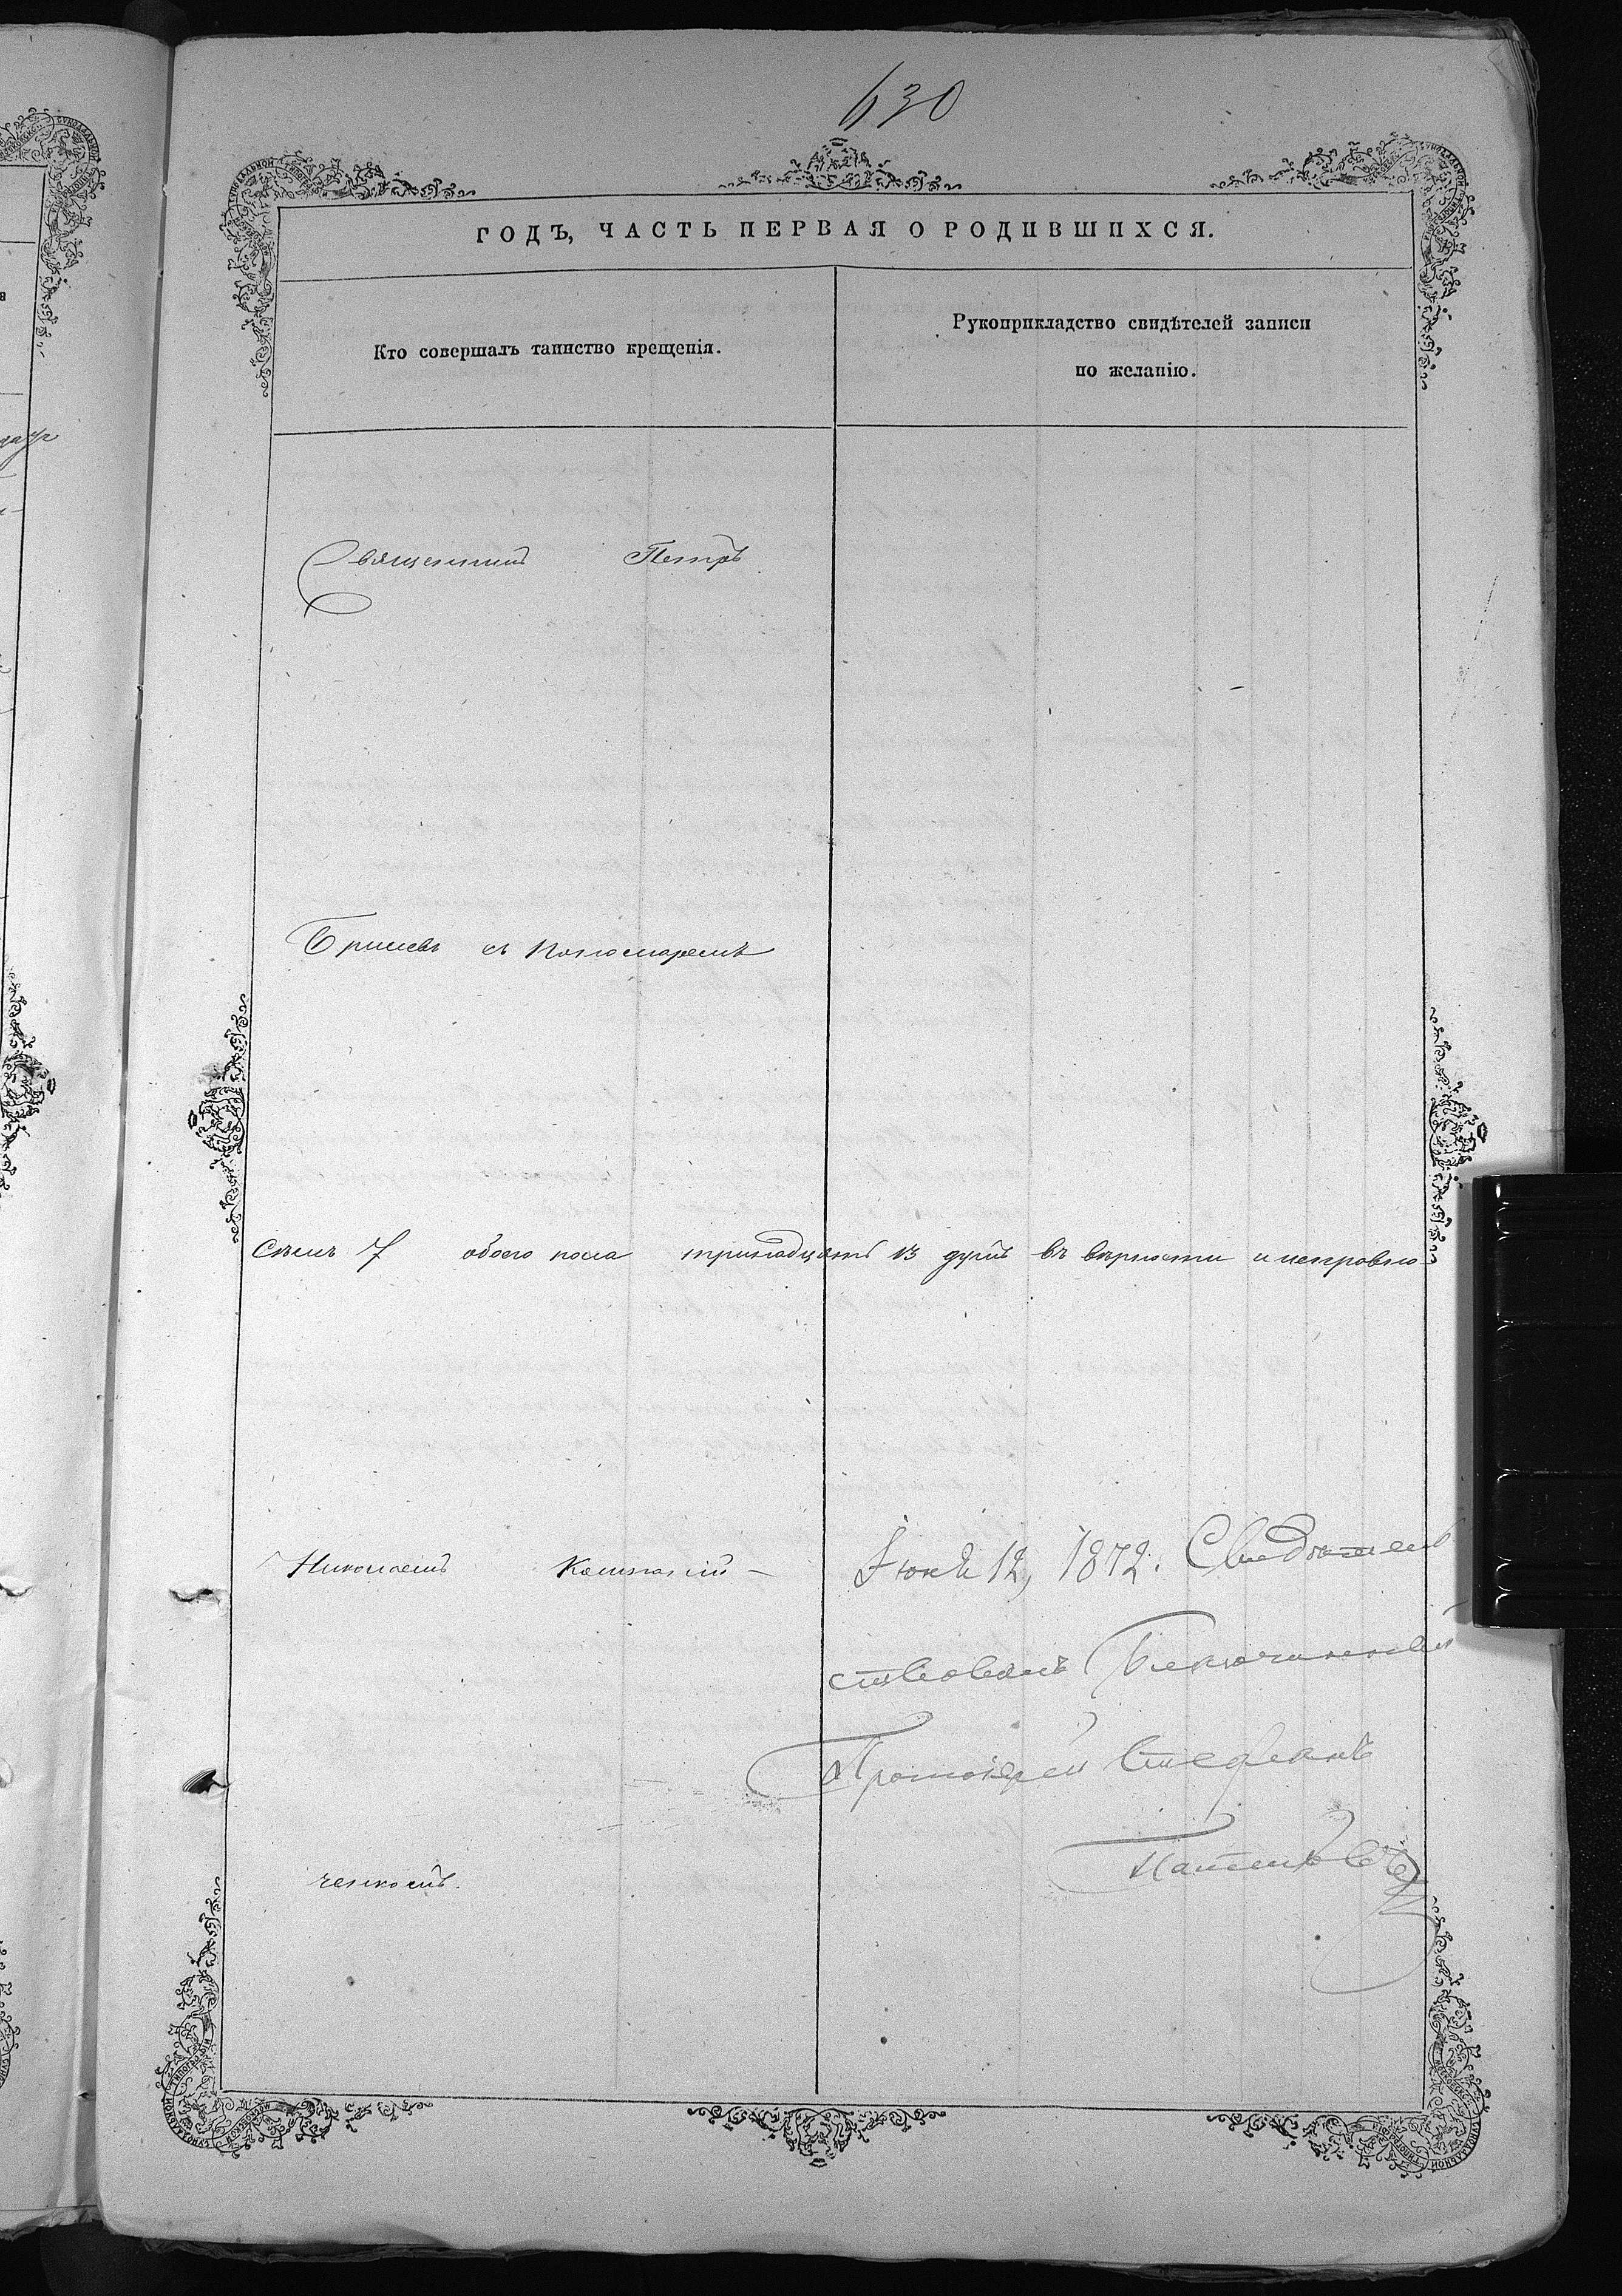 630
ГОДЪ, ЧАСТЬ ПЕРВАЯ О РОДИВШИХСЯ.
Кто совершалъ таинство крещенія.
Рукоприкладство свидѣтелей записи
по желанію.
Священникъ Петръ
съ Пономаремъ
Семь 7 обоего пола тринадцать 13 душъ въ вѣрности и исправно
Николаемъ
Іюня 12, 1872. Свидѣтель
ствовалъ Благочинный
Протоіерей Стефанъ
ченкомъ.